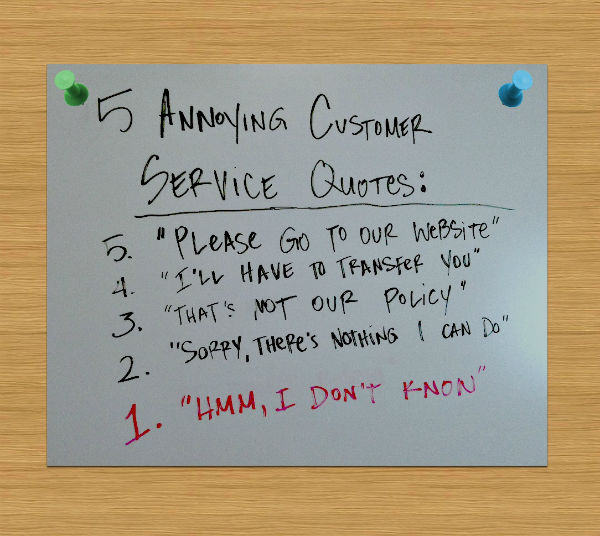 5 ANNOYING CUSTOMER
SERVICE QUOTES:
5. "PLEASE GO TO OUR WEBSITE"
4. "I'LL HAVE TO TRANSFER YOU"
3. "THAT'S NOT OUR POLICY"
2. "SORRY, THERE'S NOTHING I CAN DO"
1. "HMM, I DON'T KNOW"